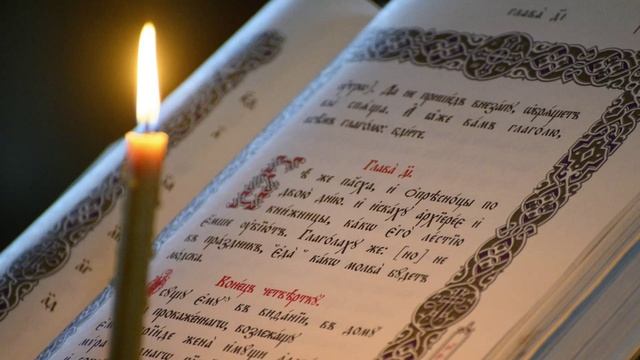 Глава д҃і
(утро). Да не прїидѣ внезапу, ѡбрящетъ
вы спѧща. И ꙗже вамъ глаголю,
всѣмъ глаголю: бдите.
Глава д҃і.
Бѣ же пасха, и ѻпрѣсноцы по
двою дню. и искаху архїерее и
книжницы, какѡ єго лестїю
ємше ѹбїютъ. Глаголаху же: [но] не
въ праздникъ, єда какѡ молва бѹдетъ
людска.
Конецъ четвертку.
сущу ємѹ въ виѳанїи, въ домѹ
прокаженнагѡ, возлежащу
прїиде жена имущи
мѵра